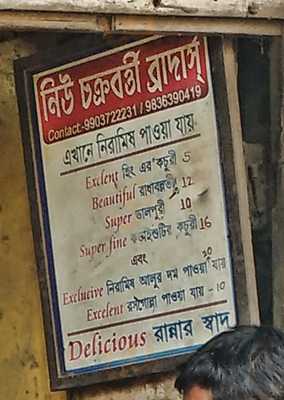 নিউ চক্রবর্ত্তী ব্রাদার্স্
Contact:-9903722231 / 9836390419
এখানে নিরামিষ পাওয়া যায়
Exclent হিং এর কচুরী 5
Beautiful রাধাবল্লভী 12
Super ডালপুরী 10
Super fine কড়াইশুটির কচুরী 16
এবং
Exclucive নিরামিষ আলুর দম পাওয়া যায় 20
Excelent রসগোল্লা পাওয়া যায় - 10
Delicious রান্নার স্বাদ